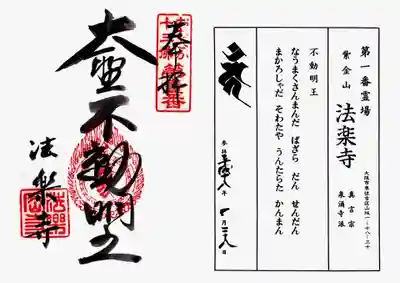 奉拝
大聖不動明王
法楽寺
第一番霊場
紫金山 法楽寺
大阪市東住吉区山坂一-十八-三十
真言宗
泉涌寺派
不動明王
なうまくさんまんだ ばざら だん せんだん
まかろしゃだ そわたや うんたらた かんまん